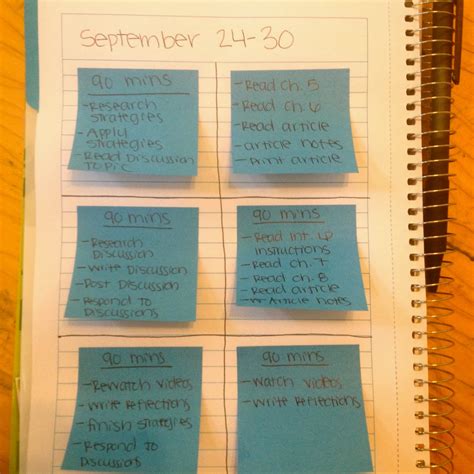 September 24-30
90 mins
- Research
strategies
- Apply
strategies
- Read Discussion
Topic
- Read Ch. 5
- Read Ch. 6
- Read article
- article notes
- Print article
90 mins
- Research
Discussion
- Write Discussion
- Post Discussion
- Respond to
Discussions
90 mins
- Read Int. 6
instructions
- Read Ch. 7
- Read Ch. 8
- Read article
- Article notes
90 mins
- Rewatch videos
- Write Reflections
- finish strategies
- Respond to
Discussion
90 mins
- Watch videos
- Write Reflections